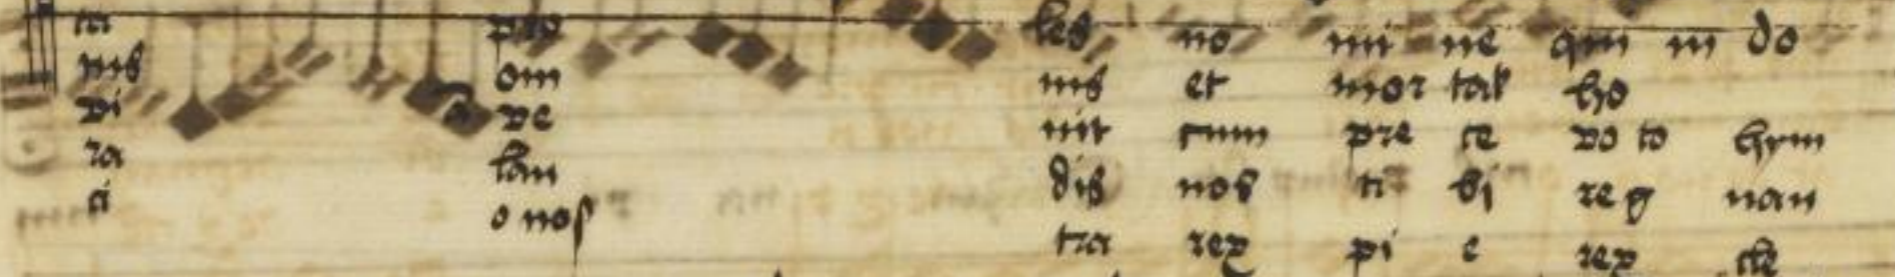 ta pro les no mi ne qui in do
cus om nis et mor tal ho
vi ve nit cum pre ce vo to hym
ra lau dis nos ti bi reg nan
ci o nos tra rex pi e rex cle